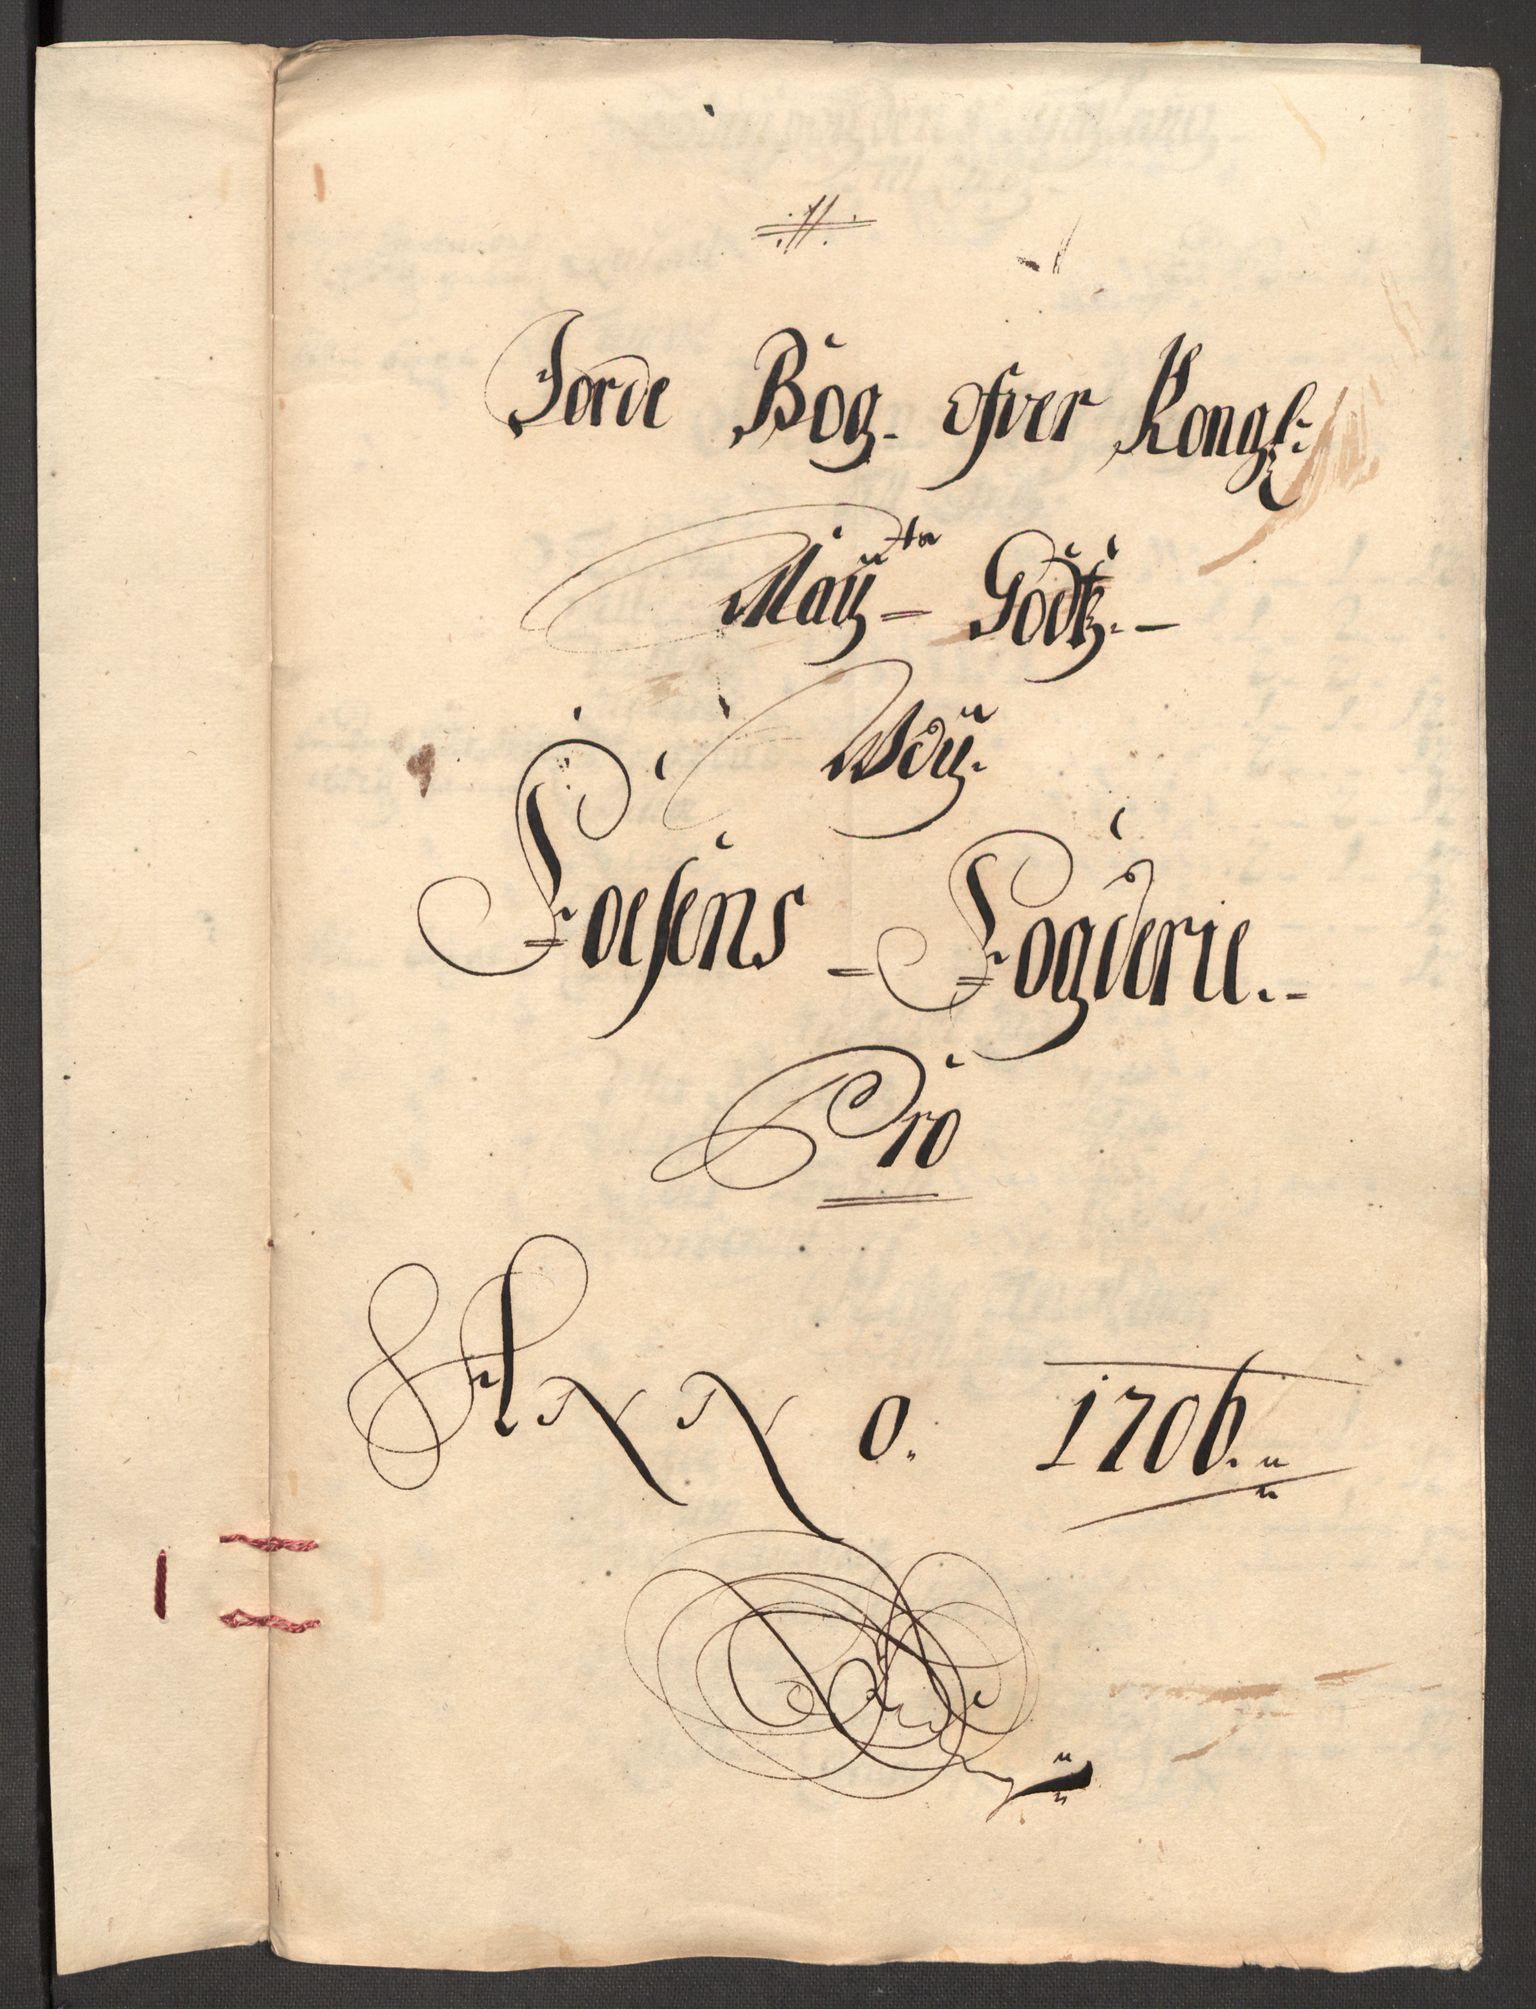 Jorde Bog ofver Kongl:
Maÿ:ts Godtz.
Udÿ.
Foesens Fogderie.
Pro
ANNO. 1706.